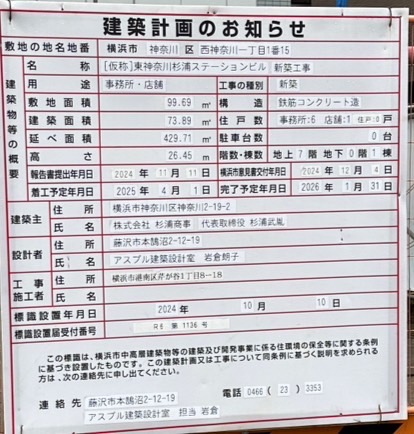 建築計画のお知らせ
敷地の地名地番 横浜市 神奈川 区 西神奈川一丁目1番15
建築物等の概要
名称 [仮称]東神奈川杉浦ステーションビル 新築工事
用途 事務所・店舗 工事の種別 新築
敷地面積 99.69 ㎡ 構造 鉄筋コンクリート造
建築面積 73.89 ㎡ 住戸数 事務所:6 店舗:1 住戸:0 戸
延べ面積 429.71 ㎡ 駐車台数 0 台
高さ 26.45 m 階数・棟数 地上 7 階 地下 0 階 1 棟
報告書提出年月日 2024 年 11 月 11 日 横浜市意見書交付年月日 2024 年 12 月 4 日
着工予定年月日 2025 年 4 月 1 日 完了予定年月日 2026 年 1 月 31 日
建築主 住所 横浜市神奈川区神奈川2-19-2
氏名 株式会社 杉浦商事 代表取締役 杉浦武胤
設計者 住所 藤沢市本鵠沼2-12-19
氏名 アスプル建築設計室 岩倉朗子
工事施工者 住所 横浜市港南区芹が谷1丁目8-18
氏名
標識設置年月日 2024 年 10 月 10 日
標識設置届受付番号 R6 第 1136 号
この標識は、横浜市中高層建築物等の建築及び開発事業に係る住環境の保全等に関する条例
に基づき設置したものです。この建築計画又は工事について同条例に基づく説明を求められる
方は、次の連絡先に申し出てください。
連絡先 藤沢市本鵠沼2-12-19 電話 0466 ( 23 ) 3353
アスプル建築設計室 担当 岩倉